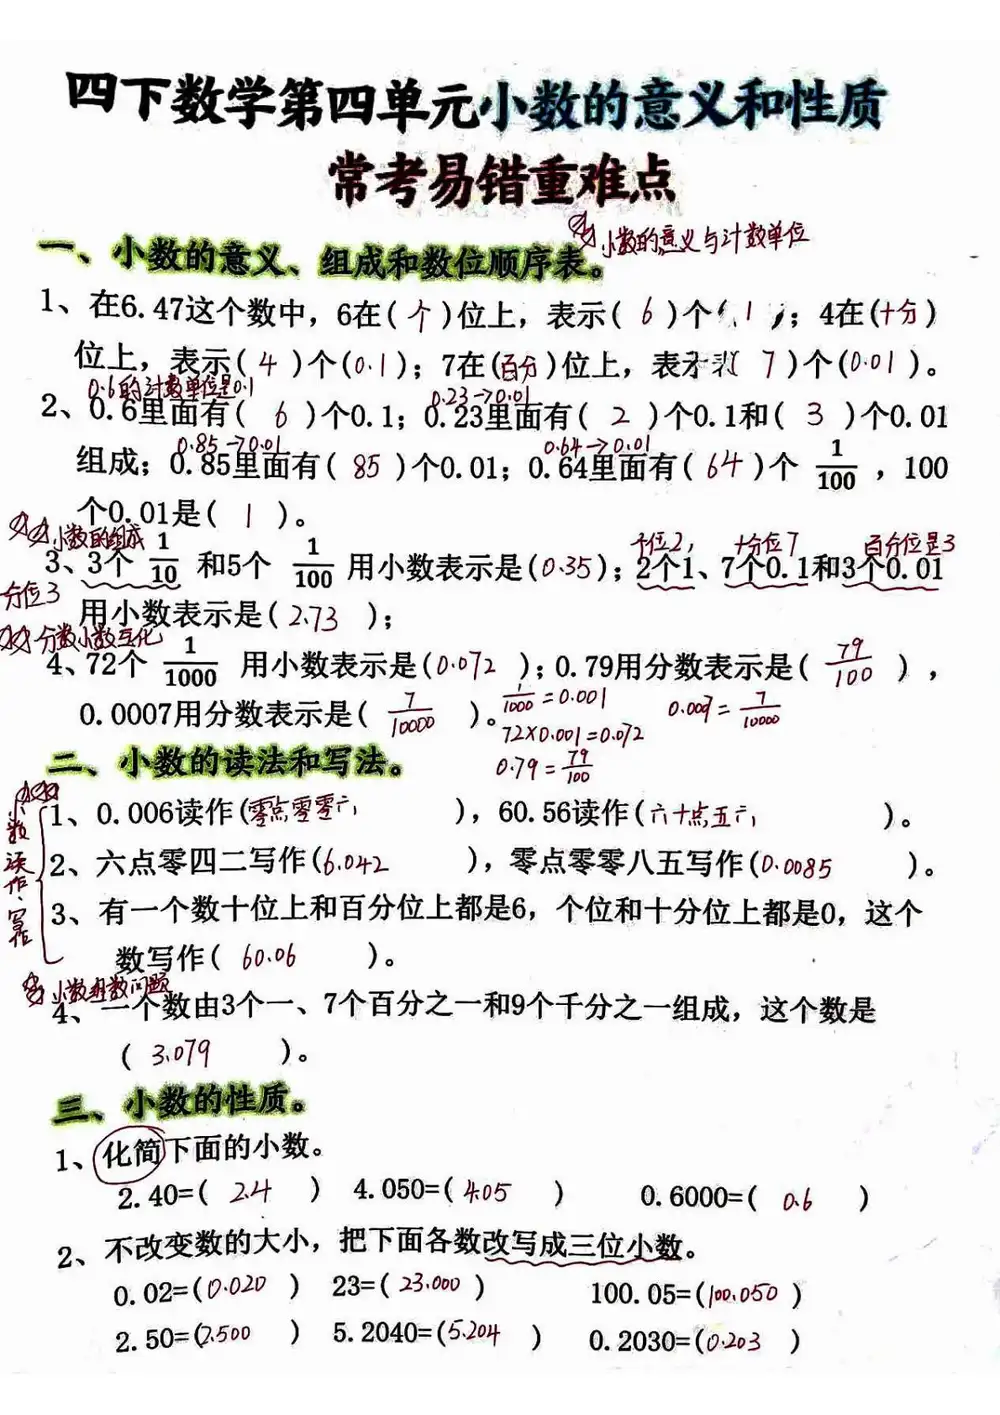 四下数学第四单元小数的意义和性质
常考易错重难点
小数的意义与计数单位
一、小数的意义、组成和数位顺序表。
1、在6.47这个数中，6在(个)位上，表示(6)个(1)；4在(十分)
位上，表示(4)个(0.1)；7在(百分)位上，表示(7)个(0.01)。
0.6的计数单位是0.1 0.23→0.01
2、0.6里面有(6)个0.1；0.23里面有(2)个0.1和(3)个0.01
0.85→0.01 0.64→0.01
组成；0.85里面有(85)个0.01；0.64里面有(64)个 1/100，100
个0.01是(1)。
小数的组成 个位2， 十分位7 百分位是3
3、3个 1/10 和5个 1/100 用小数表示是(0.35)；2个1、7个0.1和3个0.01
分位3
用小数表示是(2.73)；
分数小数互化
4、72个 1/1000 用小数表示是(0.072)；0.79用分数表示是(79/100)，
0.0007用分数表示是(7/10000)。
1/1000=0.001 0.007=7/10000
72×0.001=0.072
0.79=79/100
二、小数的读法和写法。
小数读作、写作
1、0.006读作(零点零零六)，60.56读作(六十点五六)。
2、六点零四二写作(6.042)，零点零零八五写作(0.0085)。
3、有一个数十位上和百分位上都是6，个位和十分位上都是0，这个
数写作(60.06)。
小数组数问题
4、一个数由3个一、7个百分之一和9个千分之一组成，这个数是
(3.079)。
三、小数的性质。
1、化简下面的小数。
2.40=(2.4) 4.050=(4.05) 0.6000=(0.6)
2、不改变数的大小，把下面各数改写成三位小数。
0.02=(0.020) 23=(23.000) 100.05=(100.050)
2.50=(2.500) 5.2040=(5.204) 0.2030=(0.203)